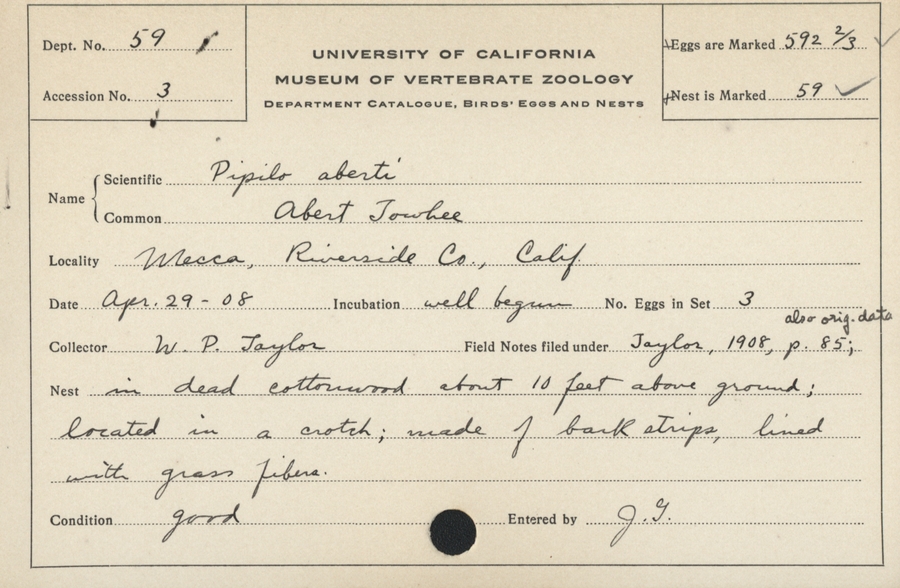 Dept. No. 59
Accession No. 3
UNIVERSITY OF CALIFORNIA
MUSEUM OF VERTEBRATE ZOOLOGY
DEPARTMENT CATALOGUE, BIRDS' EGGS AND NESTS
Eggs are Marked 592 2/3 ✓
Nest is Marked 59 ✓
Name { Scientific Pipilo aberti
Common Abert Towhee
Locality Mecca, Riverside Co., Calif.
Date Apr. 29-08 Incubation well begun No. Eggs in Set 3
also orig. data
Collector W. P. Taylor Field Notes filed under Taylor, 1908, p. 85;
Nest in dead cottonwood about 10 feet above ground;
located in a crotch; made of bark strips, lined
with grass fibers.
Condition good Entered by J.G.